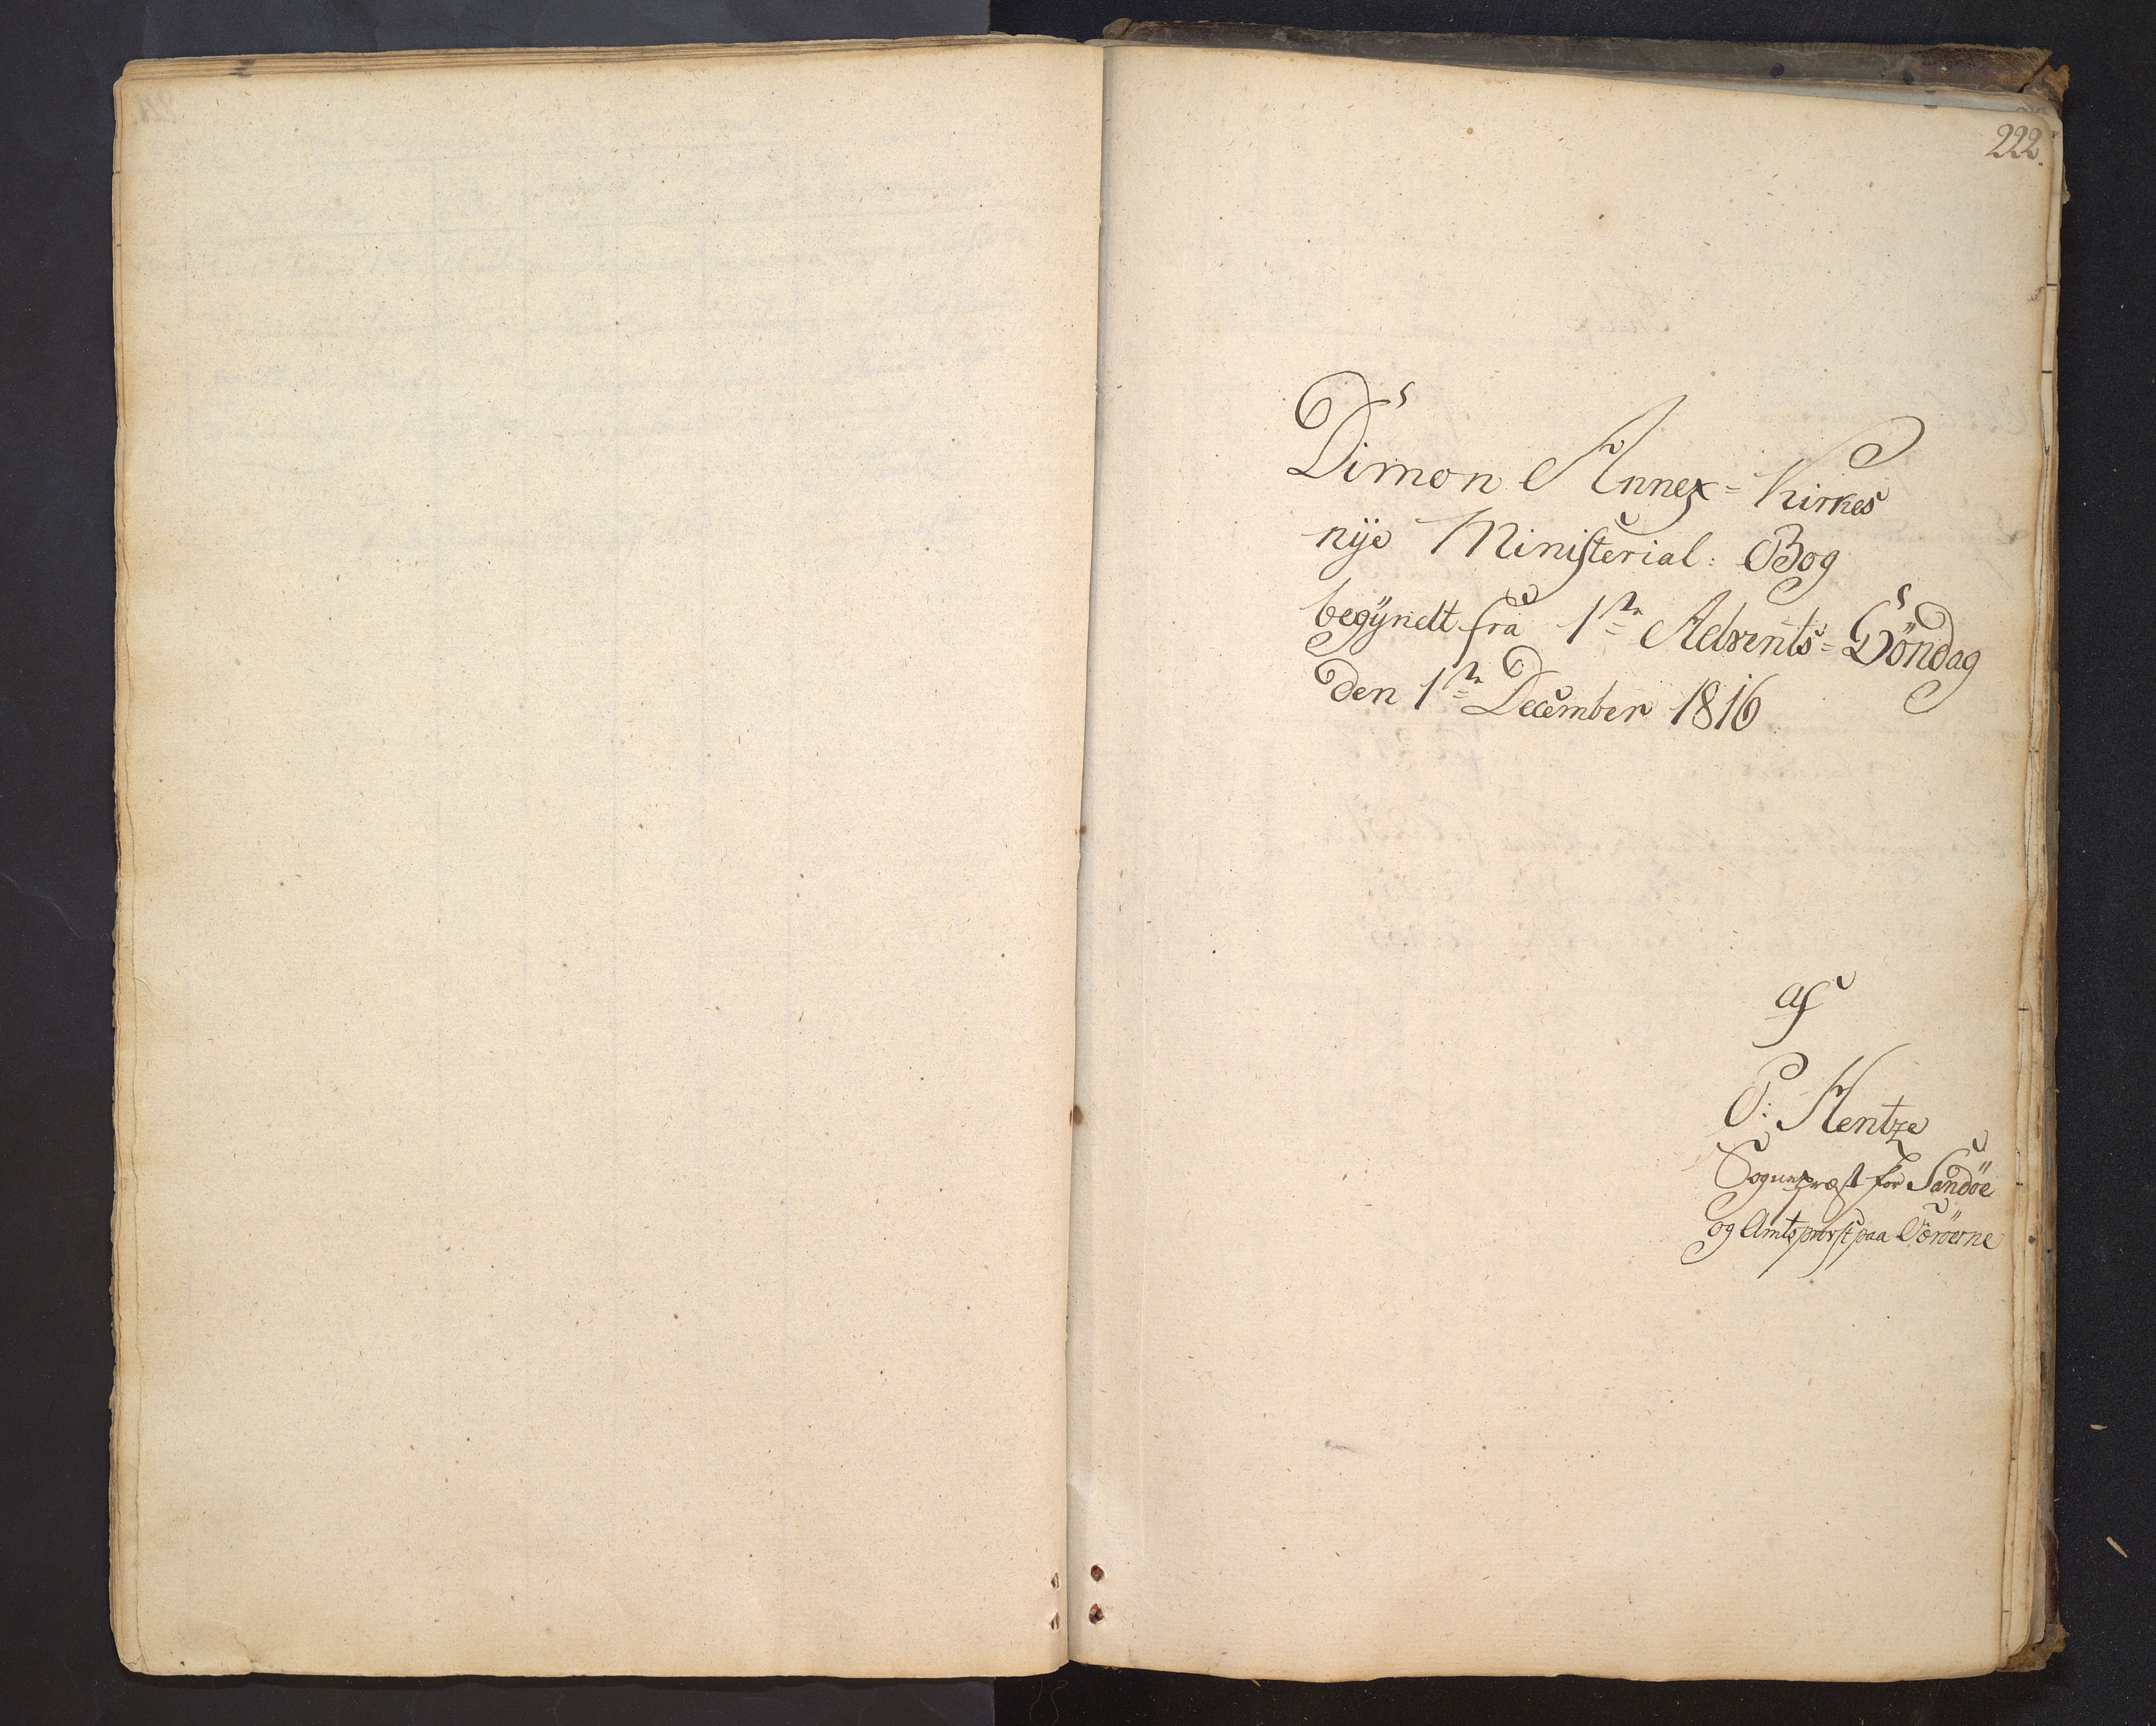 222.
Dimon Annex=Kirkes
nÿe Ministerial: Bog
begÿndt fra 1ste Advents=Söndag
den 1ste December 1816
af
P: Hentze
Sognepræst for Sandöe
og Amtsprovst paa Færöerne